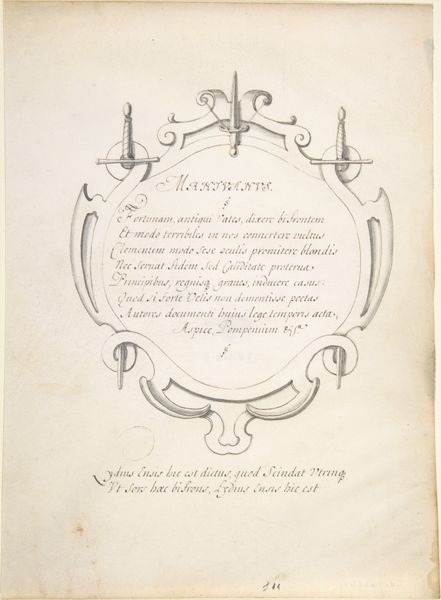 MANTVANVS.
Fortunam, antiqui Vates, dixere bifrontem
Et modo terribiles in nos conuertere vultus
Clementem modo sese oculis promittere blandis
Nec seruat fidem Sed Caliditate proterua
Principibus, regnisq graues, inducere casus:
Quod si forte Velis non dementisse poetas
Autores documenti huius lege temporis acta.
Aspice, Pompeium &c
Lydius Ensis hic est dictus, quod Scindat Vtrinq
Vt Sors hæc bifrons, Lydius Ensis hic est